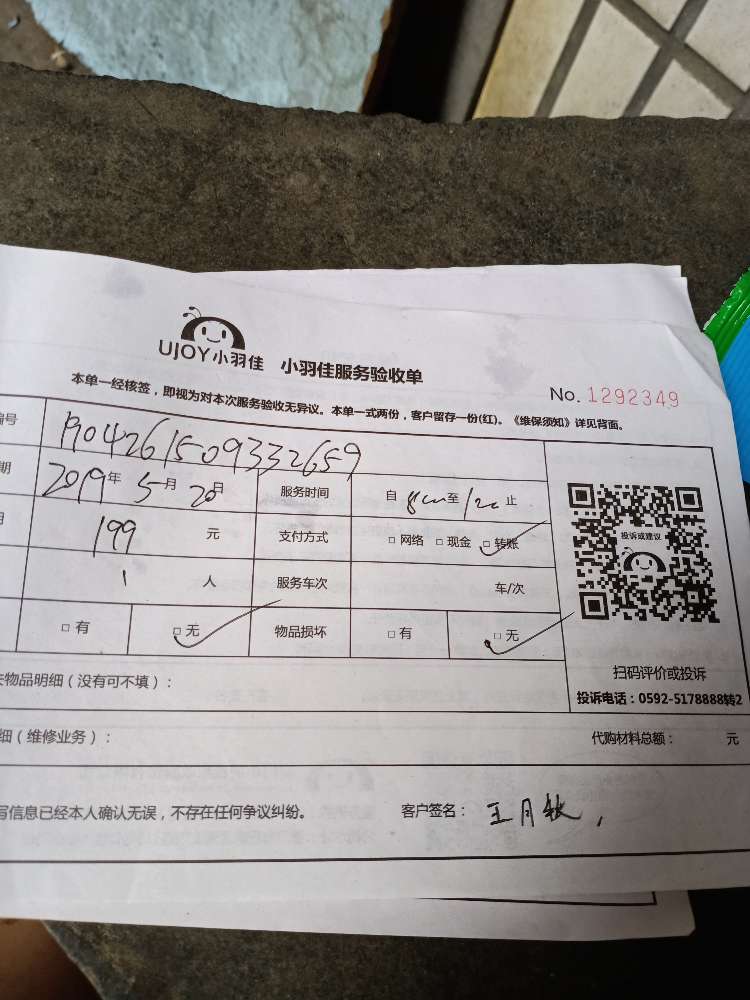 UJOY小羽佳 小羽佳服务验收单
No. 1292349
本单一经核签，即视为对本次服务验收无异议。本单一式两份，客户留存一份(红)。《维保须知》详见背面。
编号 1904261509332659
期 2019年 5月 20日 服务时间 自 至 止
199 元 支付方式 □ 网络 □ 现金 □ 转账
1 人 服务车次 车/次
□ 有 □ 无 物品损坏 □ 有 □ 无
投诉或建议
扫码评价或投诉
投诉电话：0592-5178888转2
物品明细（没有可不填）：
细（维修业务）： 代购材料总额： 元
写信息已经本人确认无误，不存在任何争议纠纷。 客户签名： 王月秋